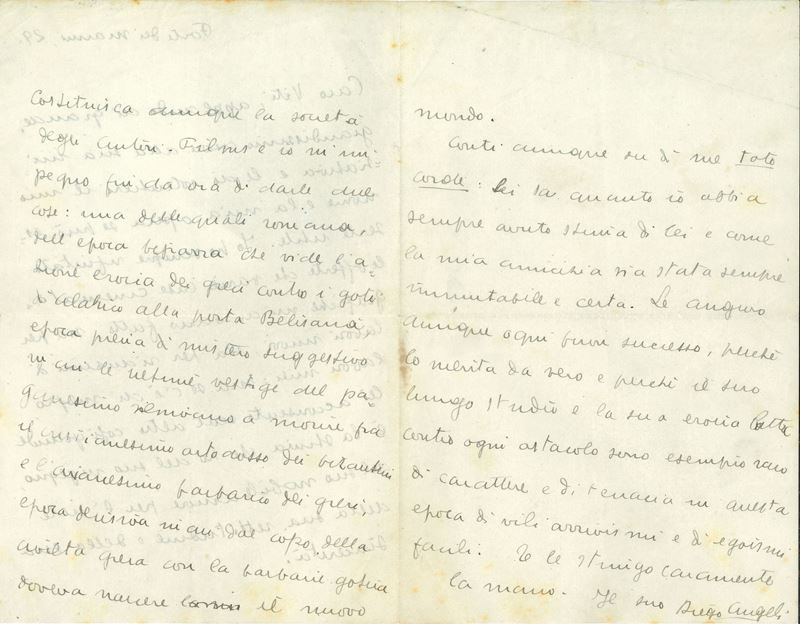 Costituisca dunque la società
degli Autori. Films e io m'im
pegno fin da ora di darle due
cose: una delle quali romana,
dell'epoca bizzarra che vide l'a-
zione eroica dei greci contro i goti
d'alarico alla porta Belisaria
epoca piena di mistero suggestivo
in cui le ultime vestige del pa-
ganesimo venivano a morire fra
il cristianesimo ortodosso dei bizantini
e l'arianesimo barbarico dei greci,
epoca decisiva in cui dal cozzo della
civiltà greca con la barbarie gotica
doveva nascere il nuovo
mondo.
Conti dunque su di me toto
corde: Lei sa quanto io abbia
sempre avuto stima di lei e come
la mia amicizia sia stata sempre
immutabile e certa. Le auguro
dunque ogni buon successo, perchè
lo merita da vero e perchè il suo
lungo studio e la sua eroica lotta
contro ogni ostacolo sono esempio raro
di carattere e di tenacia in questa
epoca di vili arrivismi e di egoismi
facili. E le stringo caramente
la mano. Il suo Diego Angeli